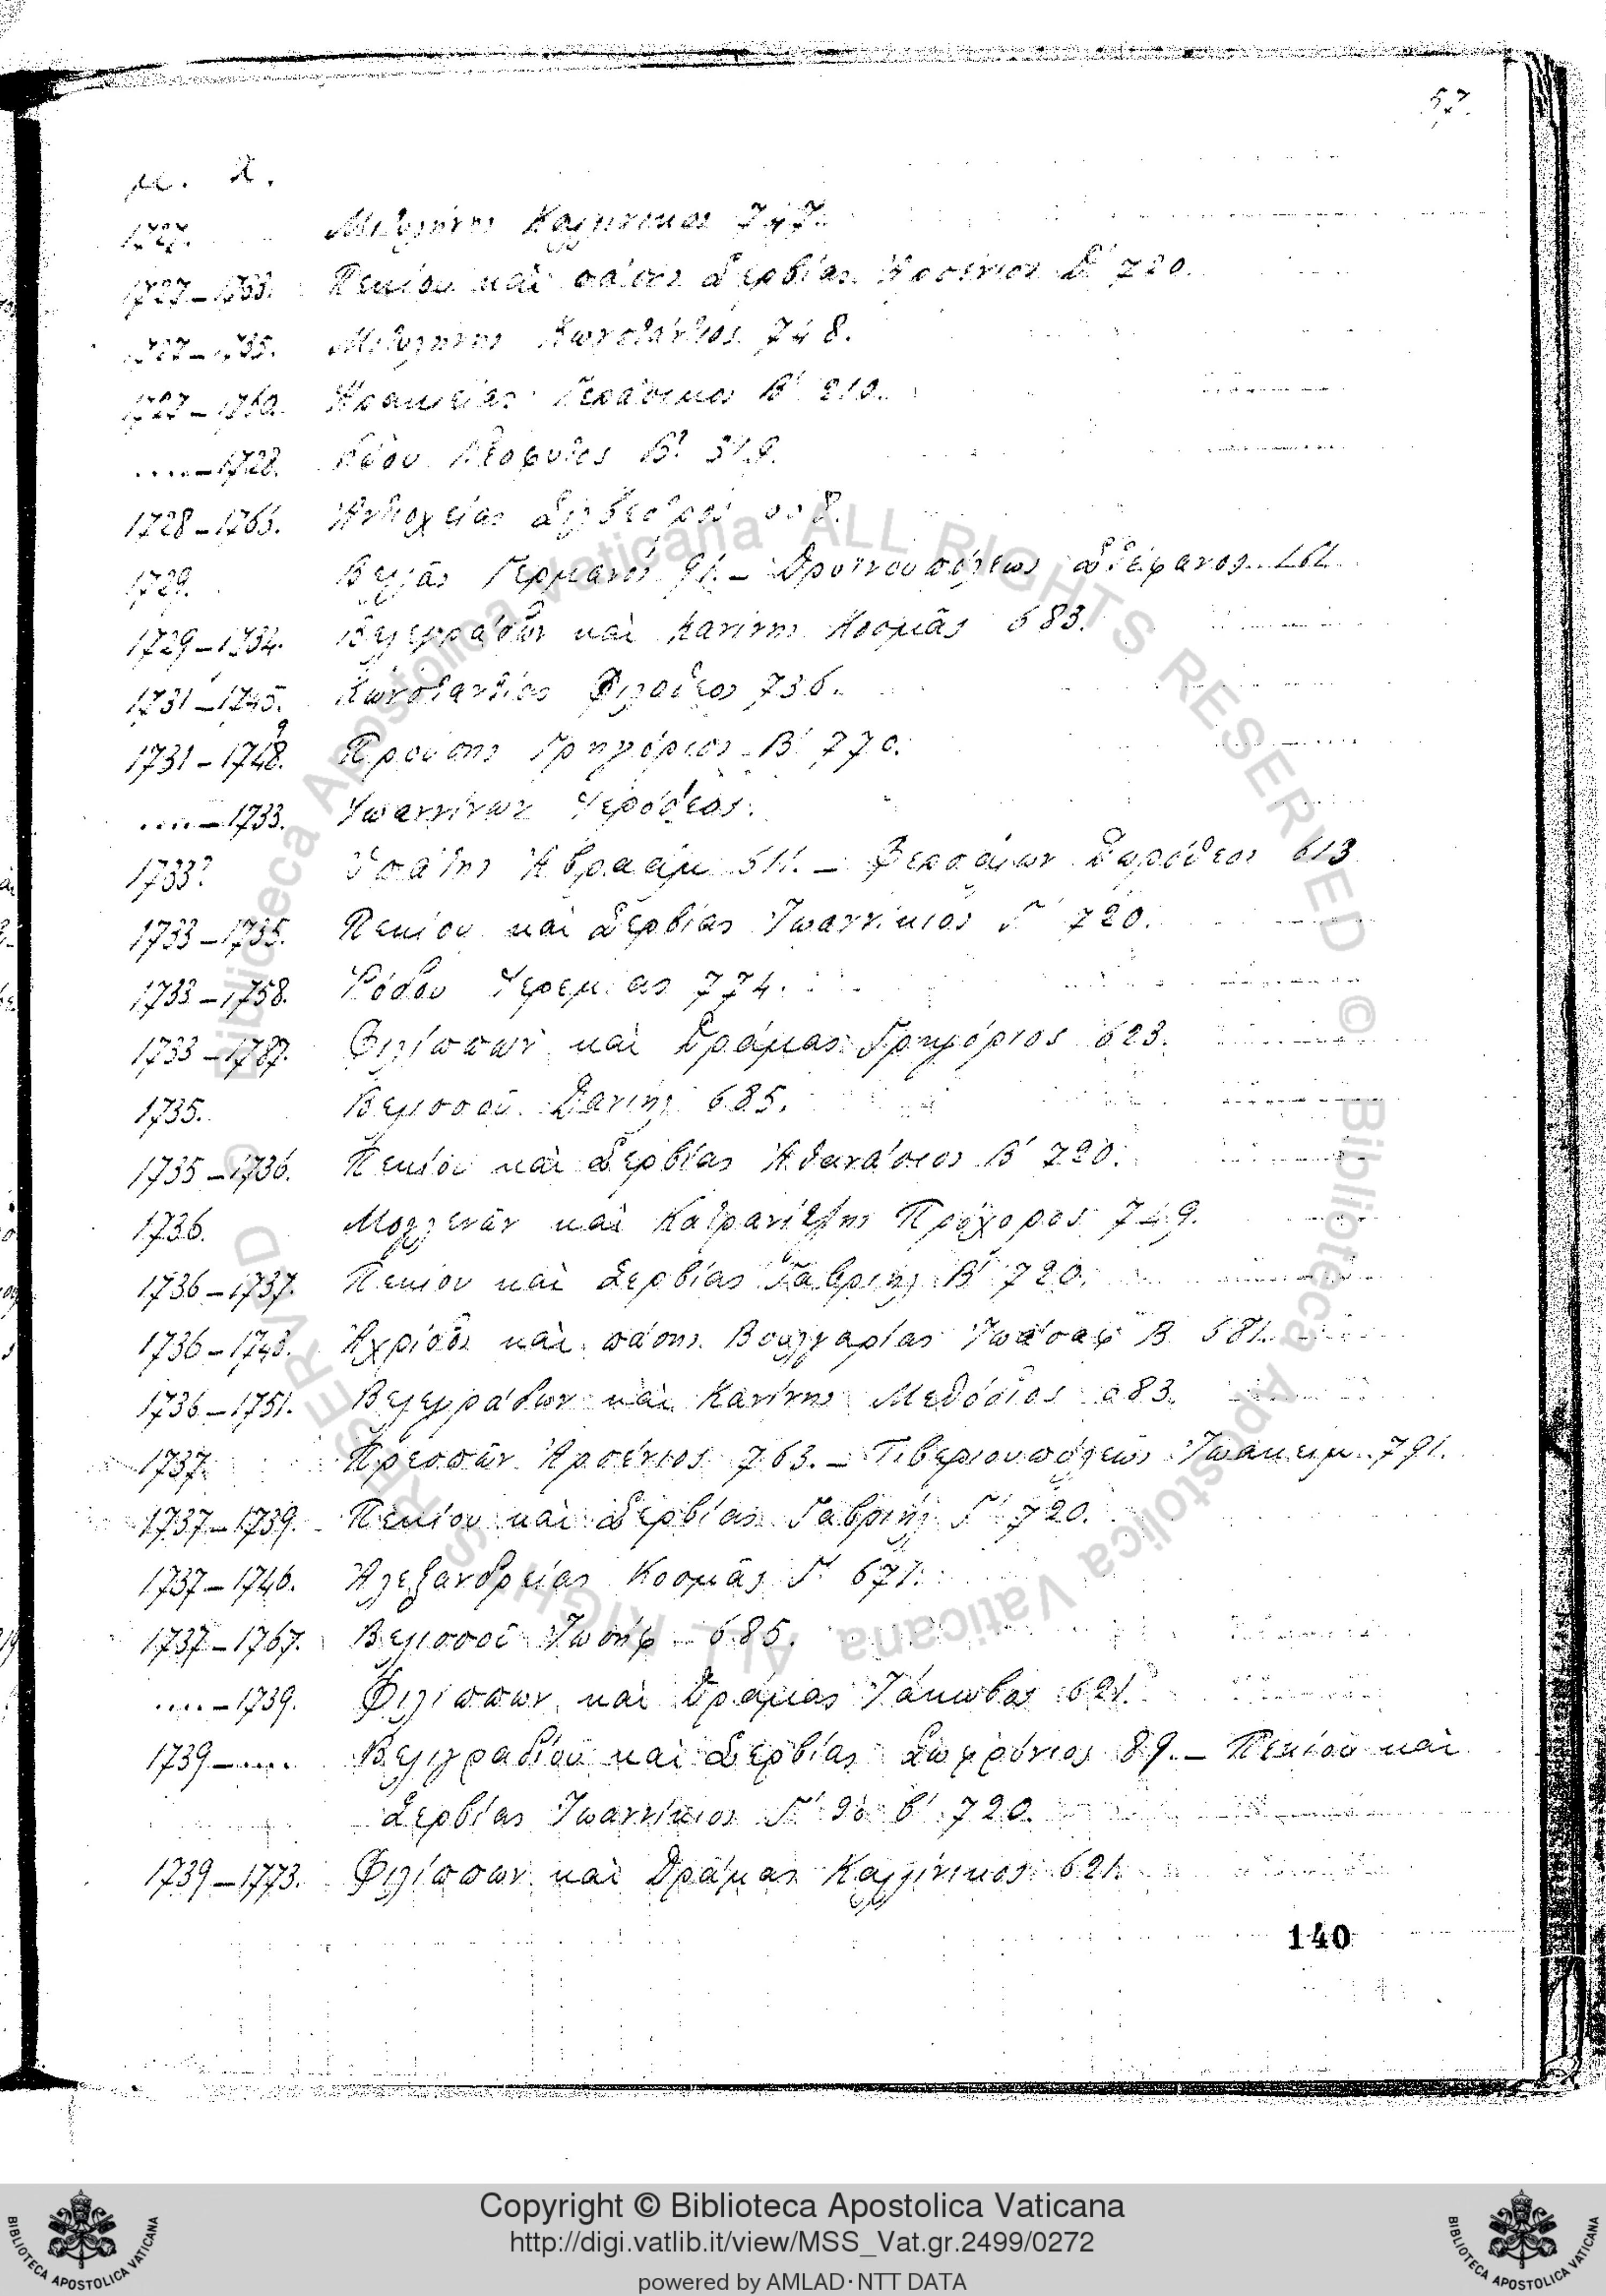 57.
μ. Χ.
1727. Μιτυλήνης Καλλίνικος 747.
1727–1733. Πεκίου καὶ πάσης Σερβίας Ἀρσένιος Δ' 720.
1727–1735. Μιτυλήνης Κωνστάντιος 748.
1727–1760. Ἡρακλείας Γεράσιμος Β' 210.
....–1728. Β'
1728–1766. Ἀντιοχείας Σίλβεστρος
1729. Βελλᾶς Γερμανός 91. – Δρυϊνουπόλεως Στέφανος
1729–1734. Βελεγράδων καὶ Κανίνης Κοσμᾶς 683.
1731–1745. Κωνσταντίας Φιλόθεος 736.
1731–1748. Προύσης Γρηγόριος Β' 770.
9
....–1733. Ἰωαννίνων Ἱερόθεος.
1733? Ἀβραάμ 511. – Φερσάλων Δωρόθεος 613
1733–1735. Πεκίου καὶ Σερβίας Ἰωαννίκιος Γ' 720.
1733–1758. Ῥόδου Ἱερεμίας 774.
1733–1787. Φιλίππων καὶ Δράμας Γρηγόριος 623.
1735. Βελισσοῦ Δανιήλ 685.
1735–1736. Πεκίου καὶ Σερβίας Ἀθανάσιος Β' 720.
1736. Μολλενῶν καὶ Κατρανίτζης Πρόχορος 749.
1736–1737. Πεκίου καὶ Σερβίας Γαβριήλ Β' 720.
1736–1745. Ἀχρίδος καὶ πάσης Βουλγαρίας Ἰωάσαφ Β' 681.
1736–1751. Βελεγράδων καὶ Κανίνης Μεθόδιος 683.
1737. Πρεσπῶν Ἀρσένιος 763. – Τιβεριουπόλεως Ἰωακείμ 791.
1737–1739. Πεκίου καὶ Σερβίας Γαβριήλ Γ' 720.
1737–1746. Ἀλεξανδρείας Κοσμᾶς Γ' 671.
1737–1767. Βελισσοῦ Ἰωσήφ 685.
....–1739. Φιλίππων καὶ Δράμας Ἰάκωβος 621.
1739–.... Βελιγραδίου καὶ Σερβίας Σωφρόνιος 89. – Πεκίου καὶ
Σερβίας Ἰωαννίκιος Γ' τὸ β' 720.
1739–1773. Φιλίππων καὶ Δράμας Καλλίνικος 621.
140
Copyright © Biblioteca Apostolica Vaticana
http://digi.vatlib.it/view/MSS_Vat.gr.2499/0272
powered by AMLAD·NTT DATA